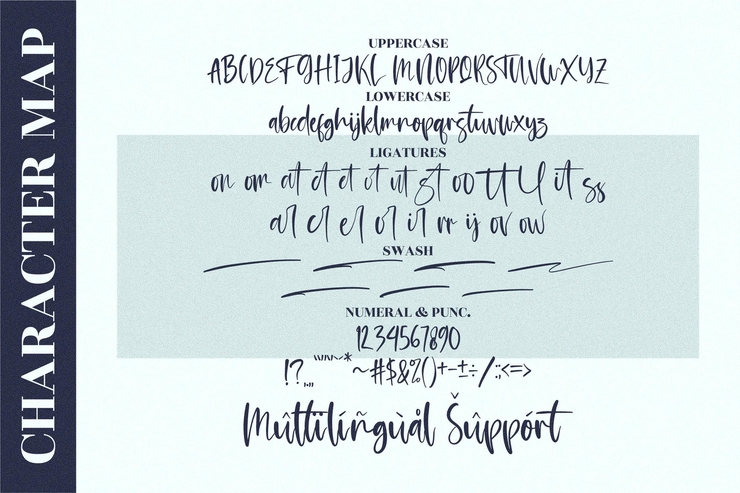 CHARACTER MAP
UPPERCASE
ABCDEFGHIJKL MNOPQRSTUVWXYZ
LOWERCASE
abcdefghijklmnopqrstuvwxyz
LIGATURES
on om at ct et ot ut st oo tt ll it ss
al cl el ol il rr ij ov ow
SWASH
NUMERAL & PUNC.
1234567890
~#$&%()+-±÷/:;<=>
Mûltïlíñgùål Šûppórt